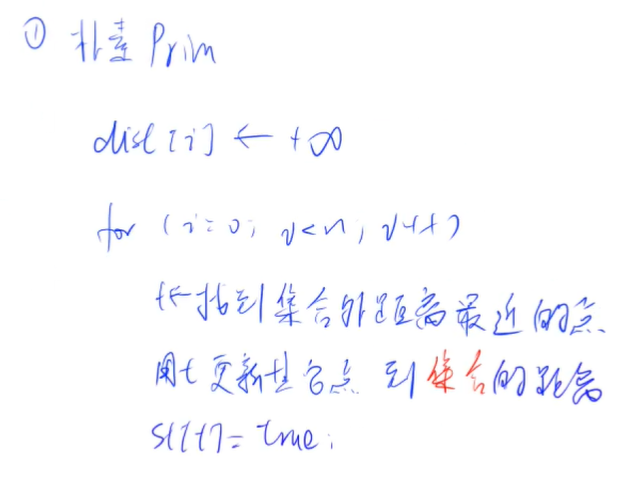 ① 朴素 Prim
dist[i] ← +∞
for (i=0; i<n; i++)
t←找到集合外距离最近的点
用t更新其它点到集合的距离
st[t]=true;